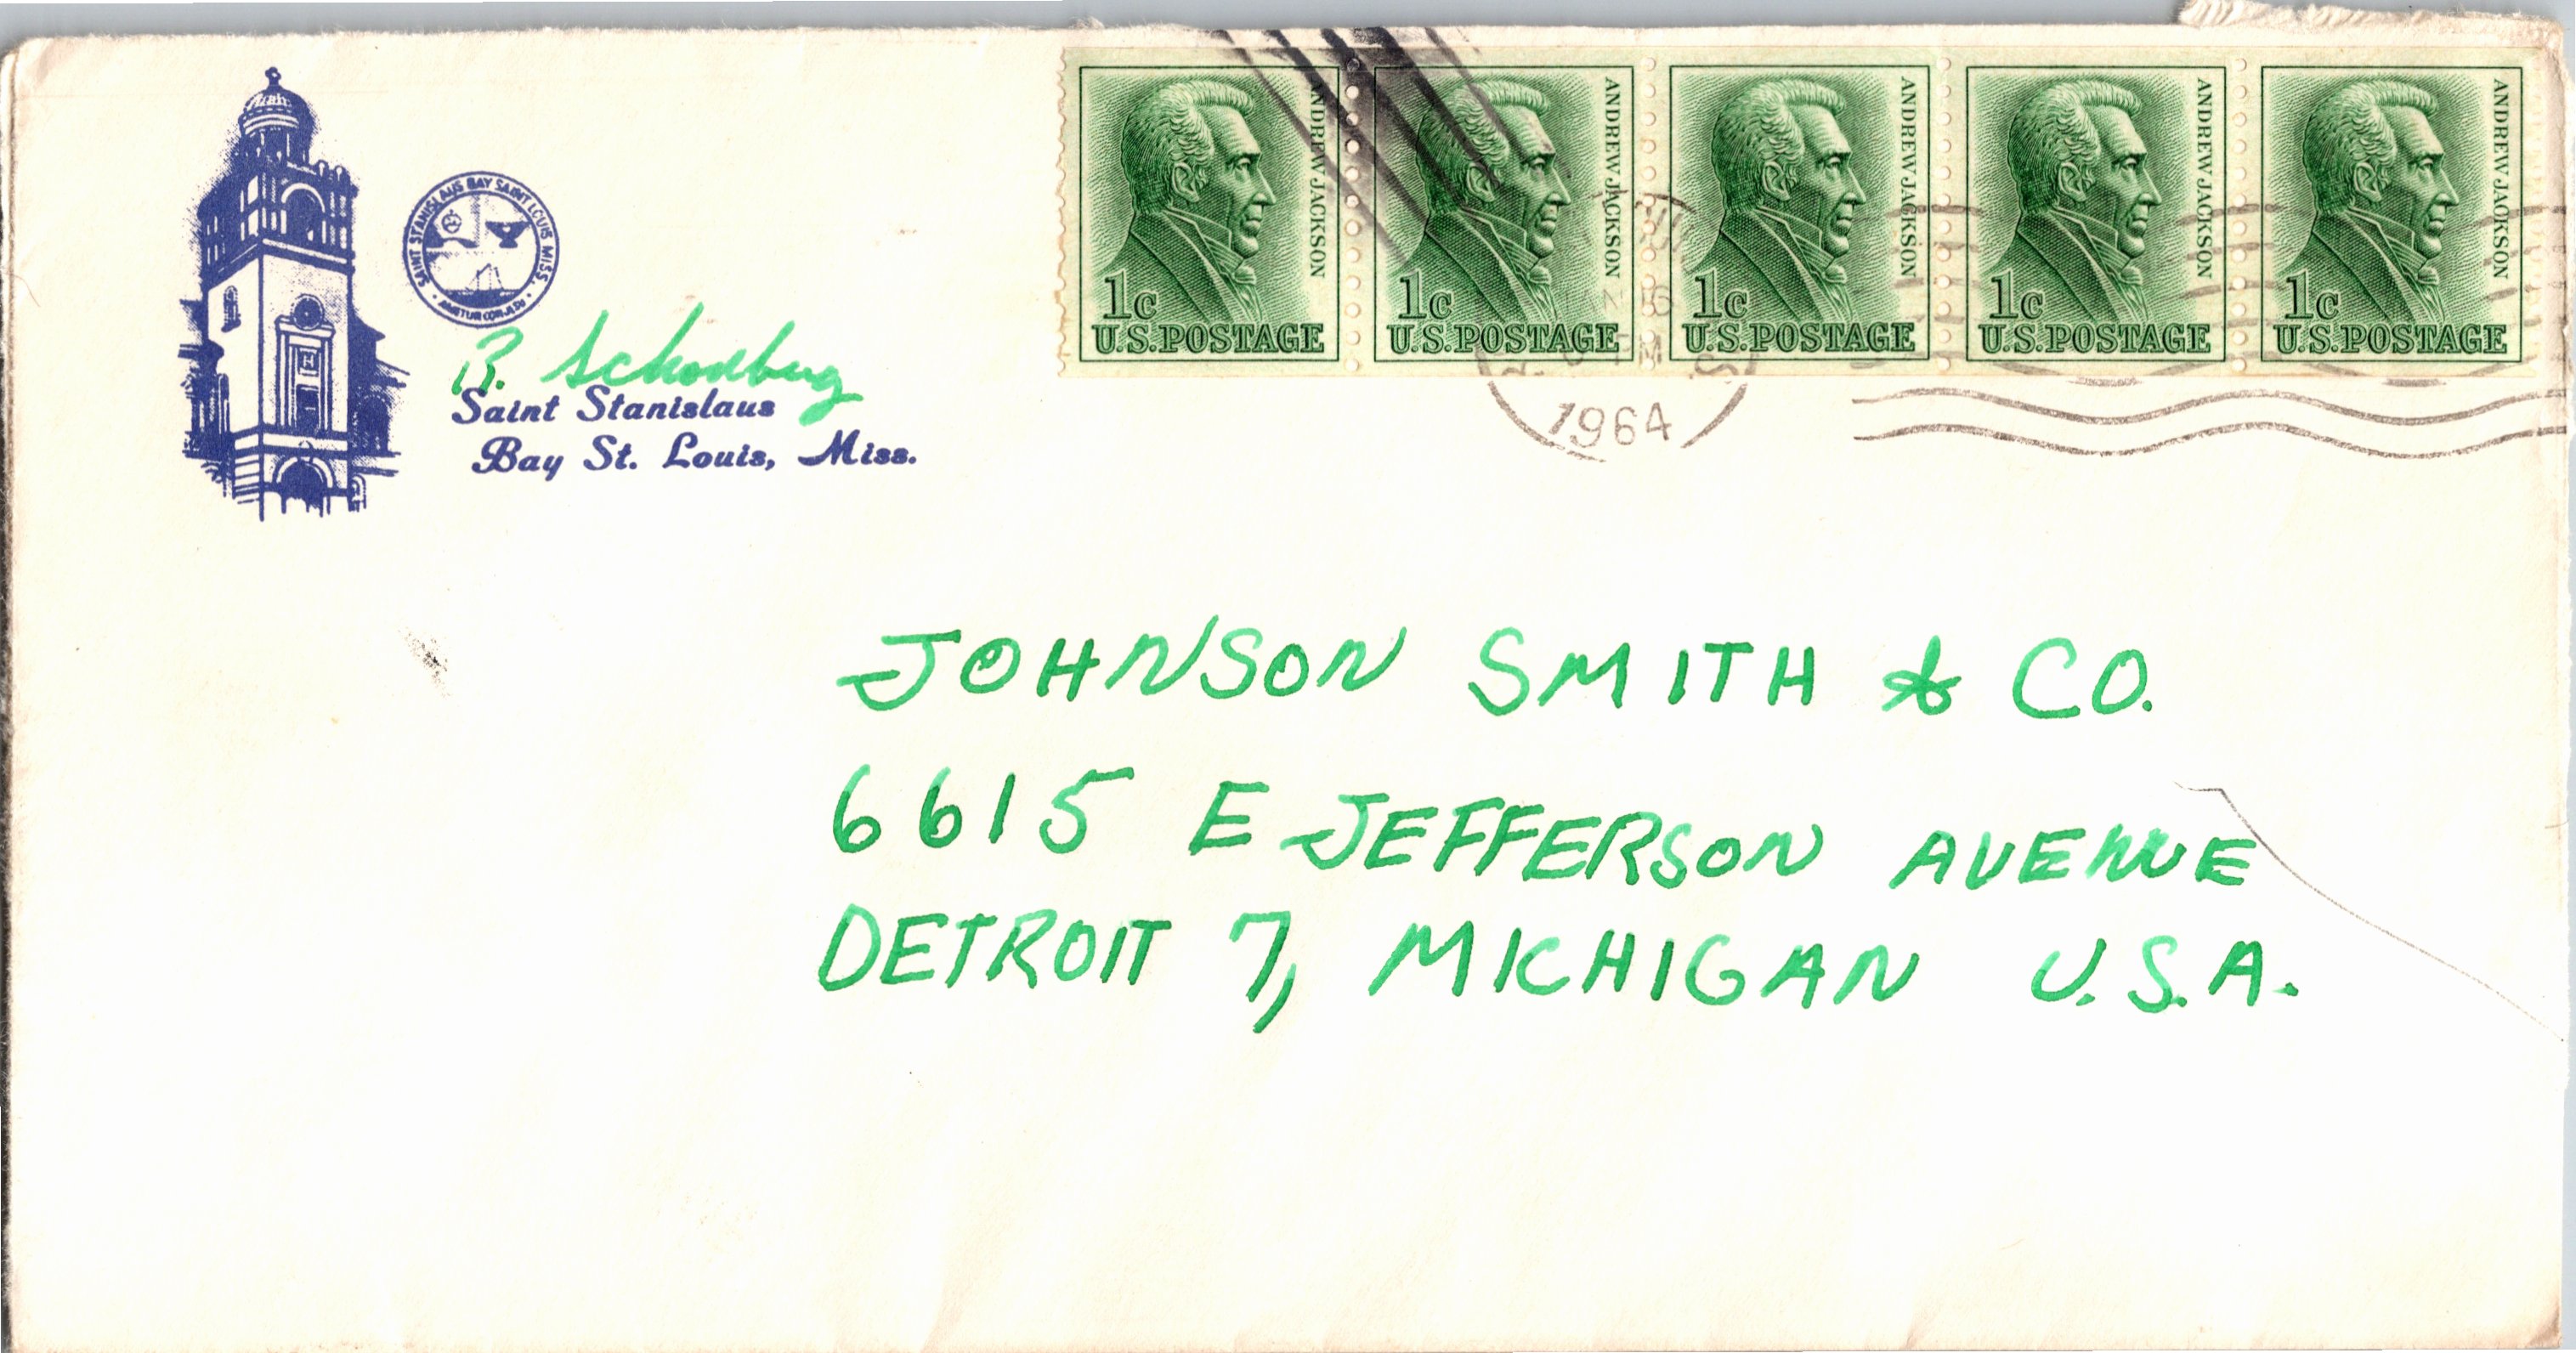 SAINT STANISLAUS BAY SAINT LOUIS MISS.
B. Schoelburg
Saint Stanislaus
Bay St. Louis, Miss.
ANDREW JACKSON
1c
U.S.POSTAGE
ANDREW JACKSON
1c
U.S.POSTAGE
ANDREW JACKSON
1c
U.S.POSTAGE
ANDREW JACKSON
1c
U.S.POSTAGE
ANDREW JACKSON
1c
U.S.POSTAGE
1964
JOHNSON SMITH & CO.
6615 E JEFFERSON AVENUE
DETROIT 7, MICHIGAN U.S.A.